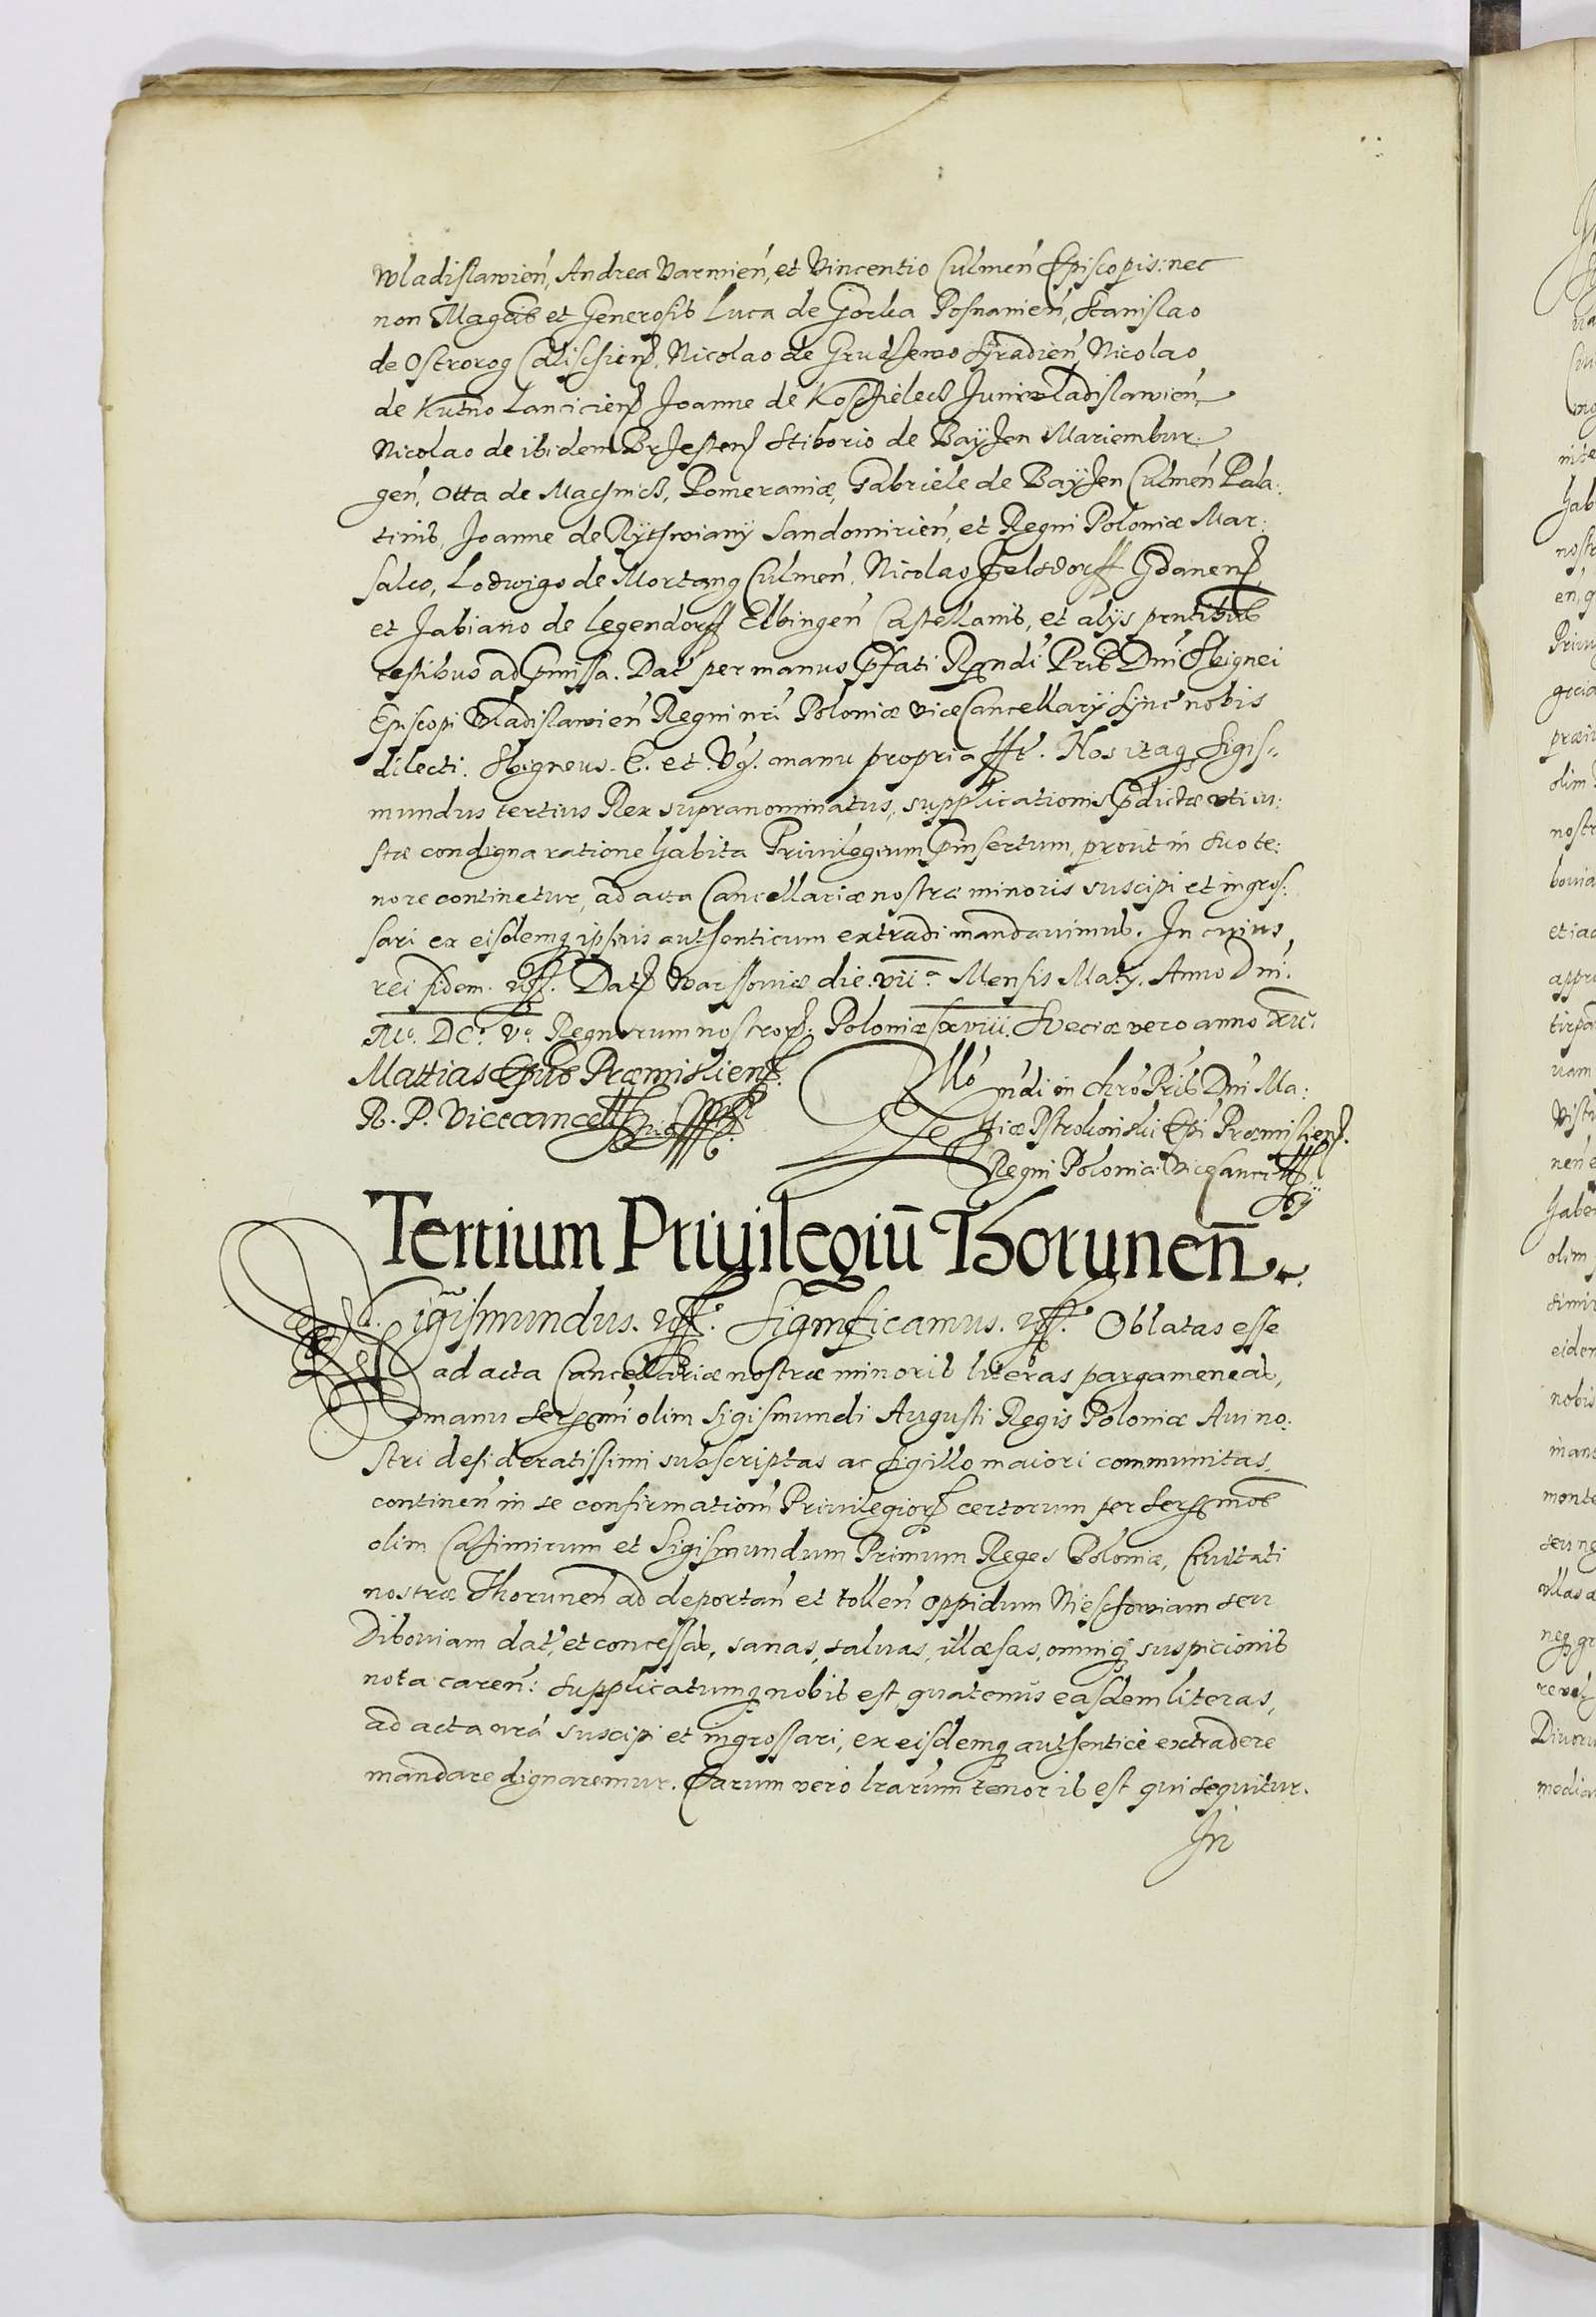 Wladislawien̄, Andrea Varmien̄, et Vincentio Culmen̄ Episcopis: nec
non Magcis et Generosis Luca de Gorka Posnanien̄, Stanislao
de Ostrorog Calischien̄, Nicolao de Grudzewo Syradien̄, Nicolao
de Kutno Lancicien̄ Joanne de Koschielecz Juniwladislawien̄,
Nicolao de ibidem Brzesten̄ Stiborio de Bayzen Mariembur:
gen̄, Otta de Machwicz, Pomeraniæ, Gabriele de Bayzen Culmen̄ Pala:
tinis, Joanne de Rythwiany Sandomirien̄, et Regni Poloniæ Mar:
salco, Lodwigo de Mortang Culmen̄, Nicolao Felsdorff Gdanen̄,
et Fabiano de Legendorff Elbingen̄ Castellanis, et alijs pntibus
testibus ad pmissa. Dat̄ per manus pfati Rndi Pris Dni Sbignei
Episcopi Wladislawien̄ Regni nri Poloniæ vice Cancellarij Sync̄ nobis
dilecti. Sbigneus. E. et. Vy. manu propria sst. Nos itaq Sigis=
mundus tertius Rex supranominatus, supplicationis pdictæ uti iu:
stæ condigna ratione habita Privilegium pinsertum, prout in suo te:
nore continetur, ad acta Cancellariæ nostræ minoris suscipi et ingros:
sari ex eisdemq ipsius authenticum extradi mandauimus. In cuius
rei fidem. Dat̄ Warssoviæ die. VIIa. Mensis Maÿ. Anno Dni.
Mo. DCo. Vo. Regnorum nostror: Poloniæ XVIII. Sveciæ vero anno XIIo.
Mattias Epus Præmislien̄.
R. P. Vicecancell
Rllō ndi in Chro Pris Dni Ma:
thiæ Pstrokonski Epi Præmislien̄.
Regni Poloniæ Vice Cancell
rij
Tertium Privilegiū Thorunen̄.
Sigismundus. Significamus. Oblatas esse
ad acta Cancellariæ nostræ minoris literas pargameneas,
manu Sermi olim Sigismundi Augusti Regis Poloniæ Aui no:
stri desideratissimi subscriptas ac sigillo maiori communitas,
continen̄ in se confirmationem Privilegior certorum per Sermos
olim Casimirum et Sigismundum Primum Reges Poloniæ, Civitati
nostræ Thorunen̄ ad deportan̄ et tollen̄ oppidum Nieschowiam seu
Diboviam dat̄, et concessas, sanas, salvas, illæsas, omniq suspicionis
nota caren̄: supplicatumq nobis est, quatenus easdem literas,
ad acta nrā suscipi et ingrossari, ex eisdemq authentice extradere
mandare dignaremur. Earum vero lrarum tenor is est qui sequitur.
In